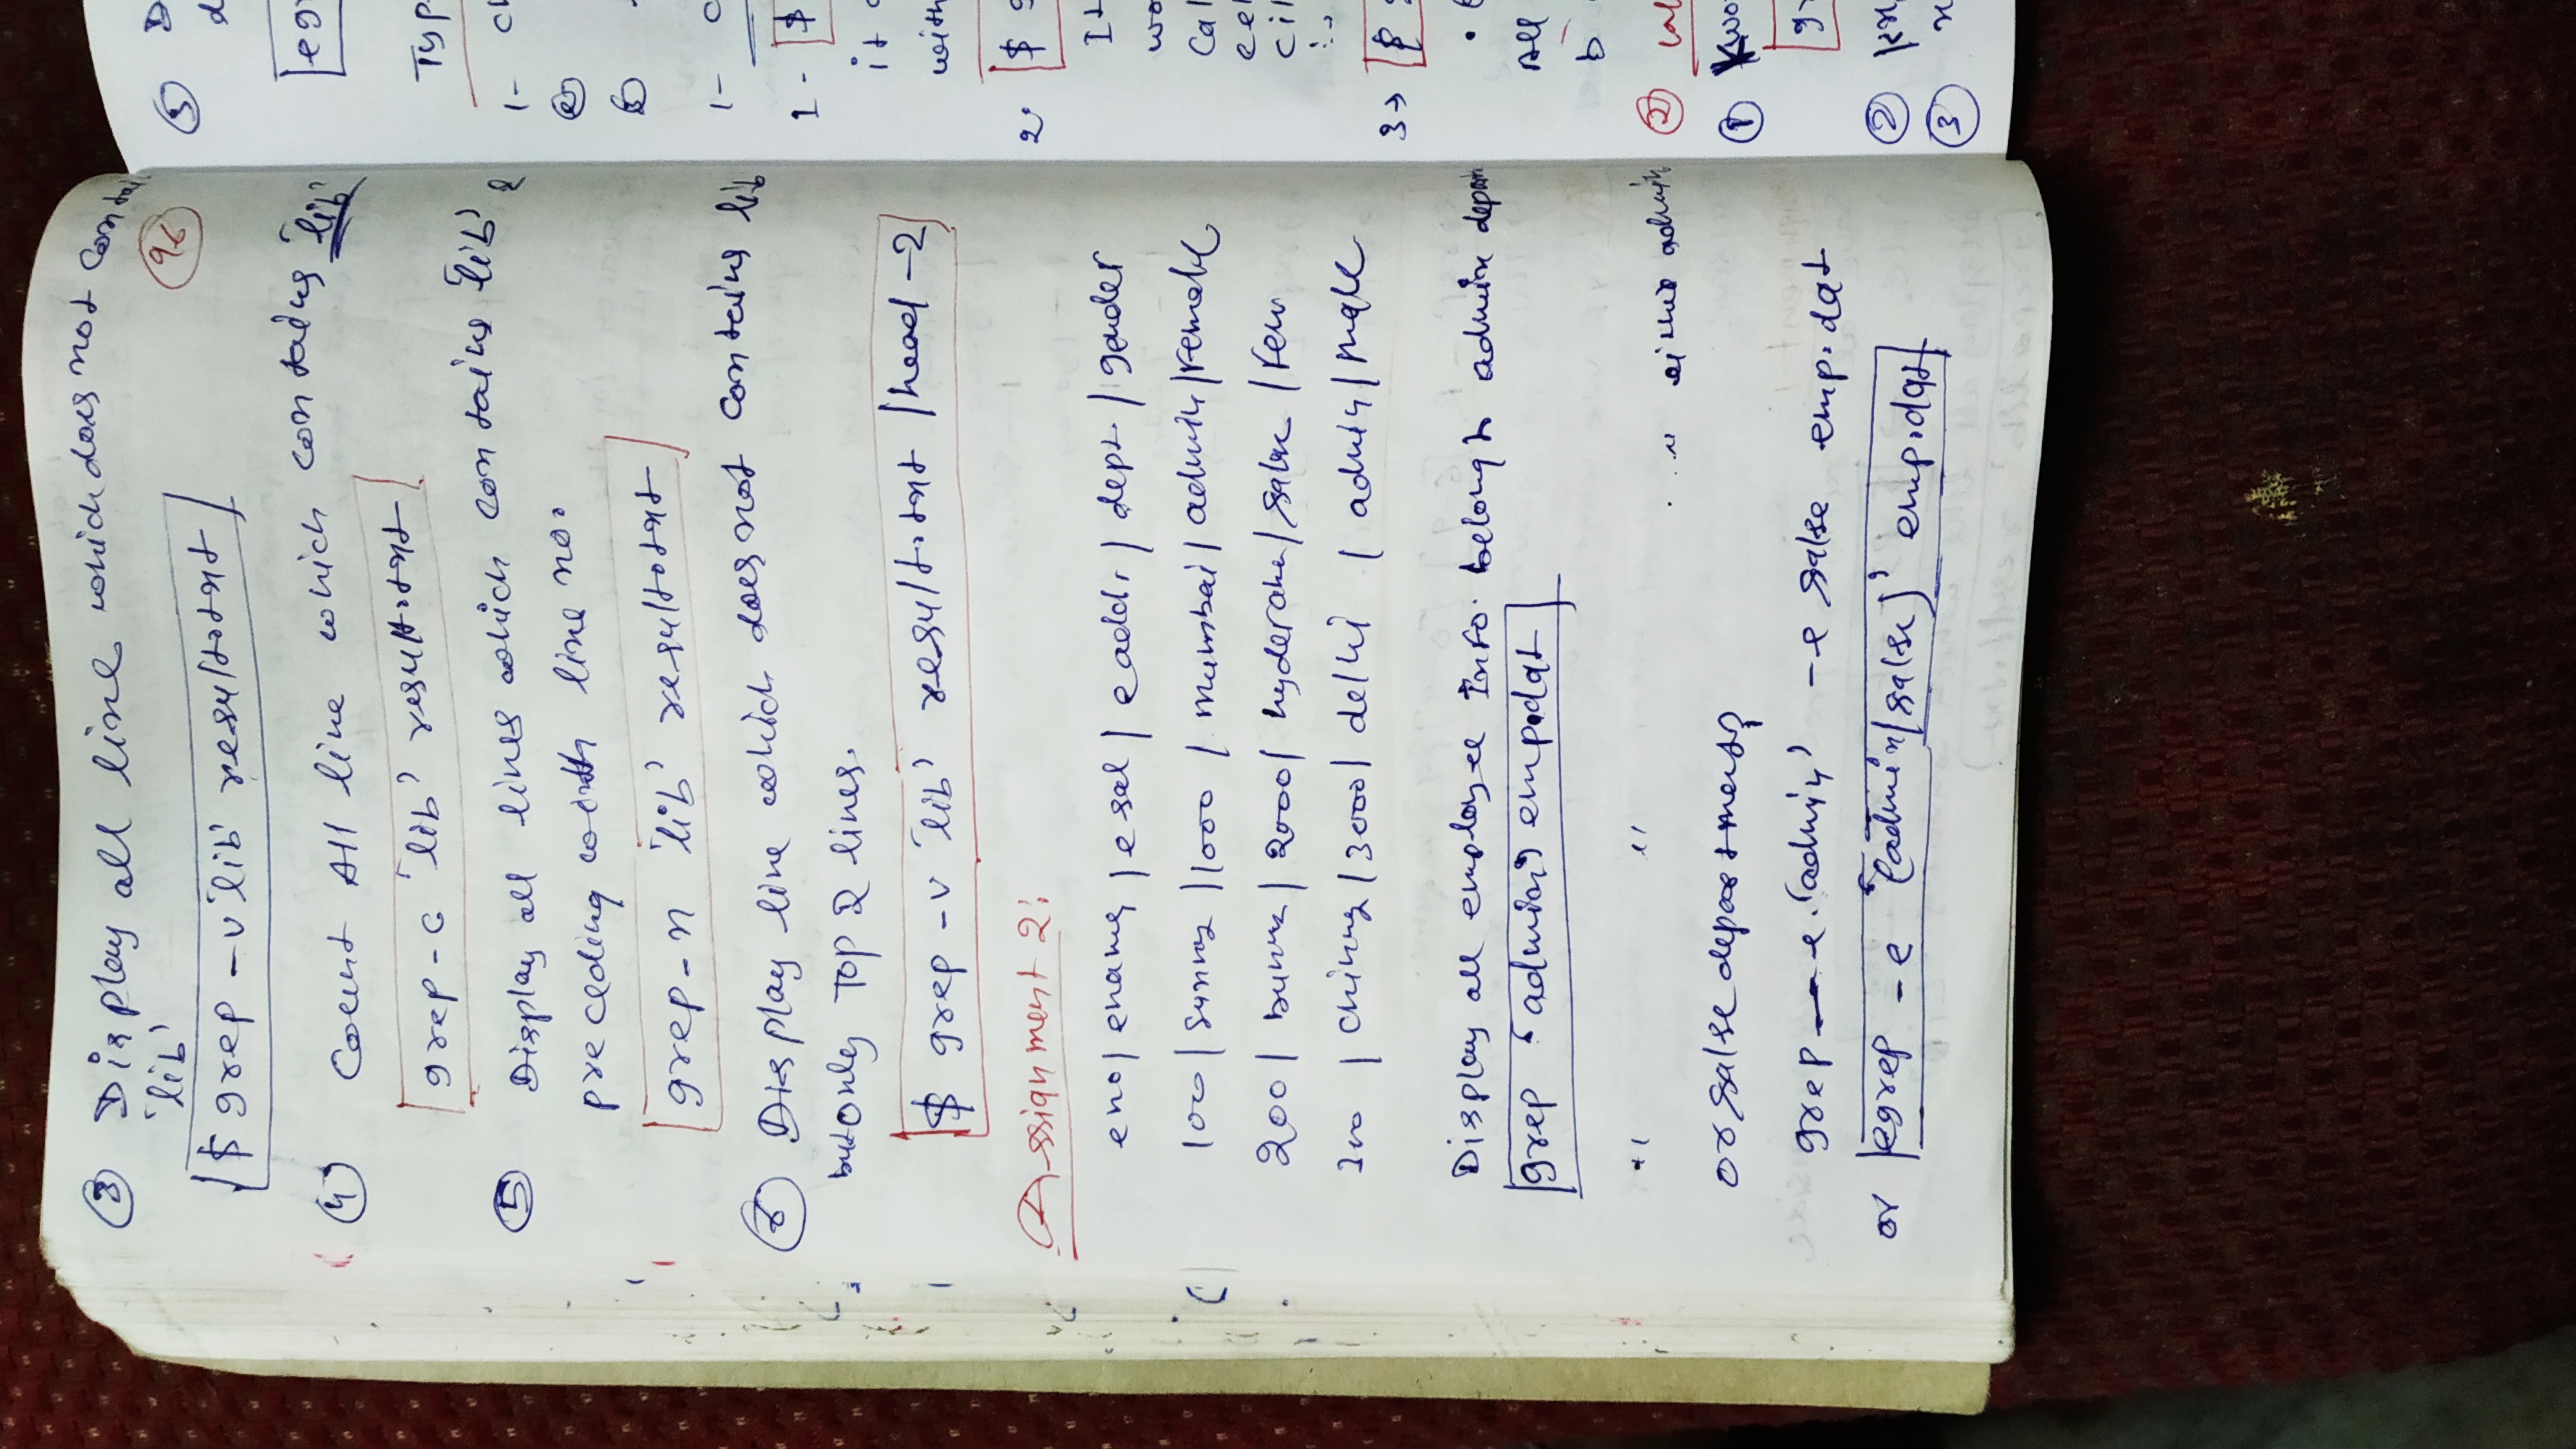 ③ Display all line which does not contai
'lib'
96
$ grep -v 'lib' result.txt
④ Count All line which contains 'lib'
grep -c 'lib' result.txt
⑤ Display all lines which contains 'lib' &
preceding with line no.
grep -n 'lib' result.txt
⑥ Display line which does not contains lib
but only Top 2 lines.
$ grep -v 'lib' result.txt | head -2
Assignment 2:
eno | ename | esal | eaddr | dept | gender
100 | sunny | 1000 | mumbai | admin | Female
200 | bunny | 2000 | / | Fem
300 | chinny | 3000 | delhi | admin | male
Display all employee Info. belong to admin depart
grep 'admin' emp.dat
" " " either admin
or salse department?
grep -e 'admin' -e salse emp.dat
or egrep -e '(admin|salse)' emp.dat
⑤ D
d
egr
Typ
1- ch
②
③
1- c
1- $
it
with
2. $ g
It
wo
Cal
cel
cil
3→ $
All
b
②
① kwo
gr
②
③ x